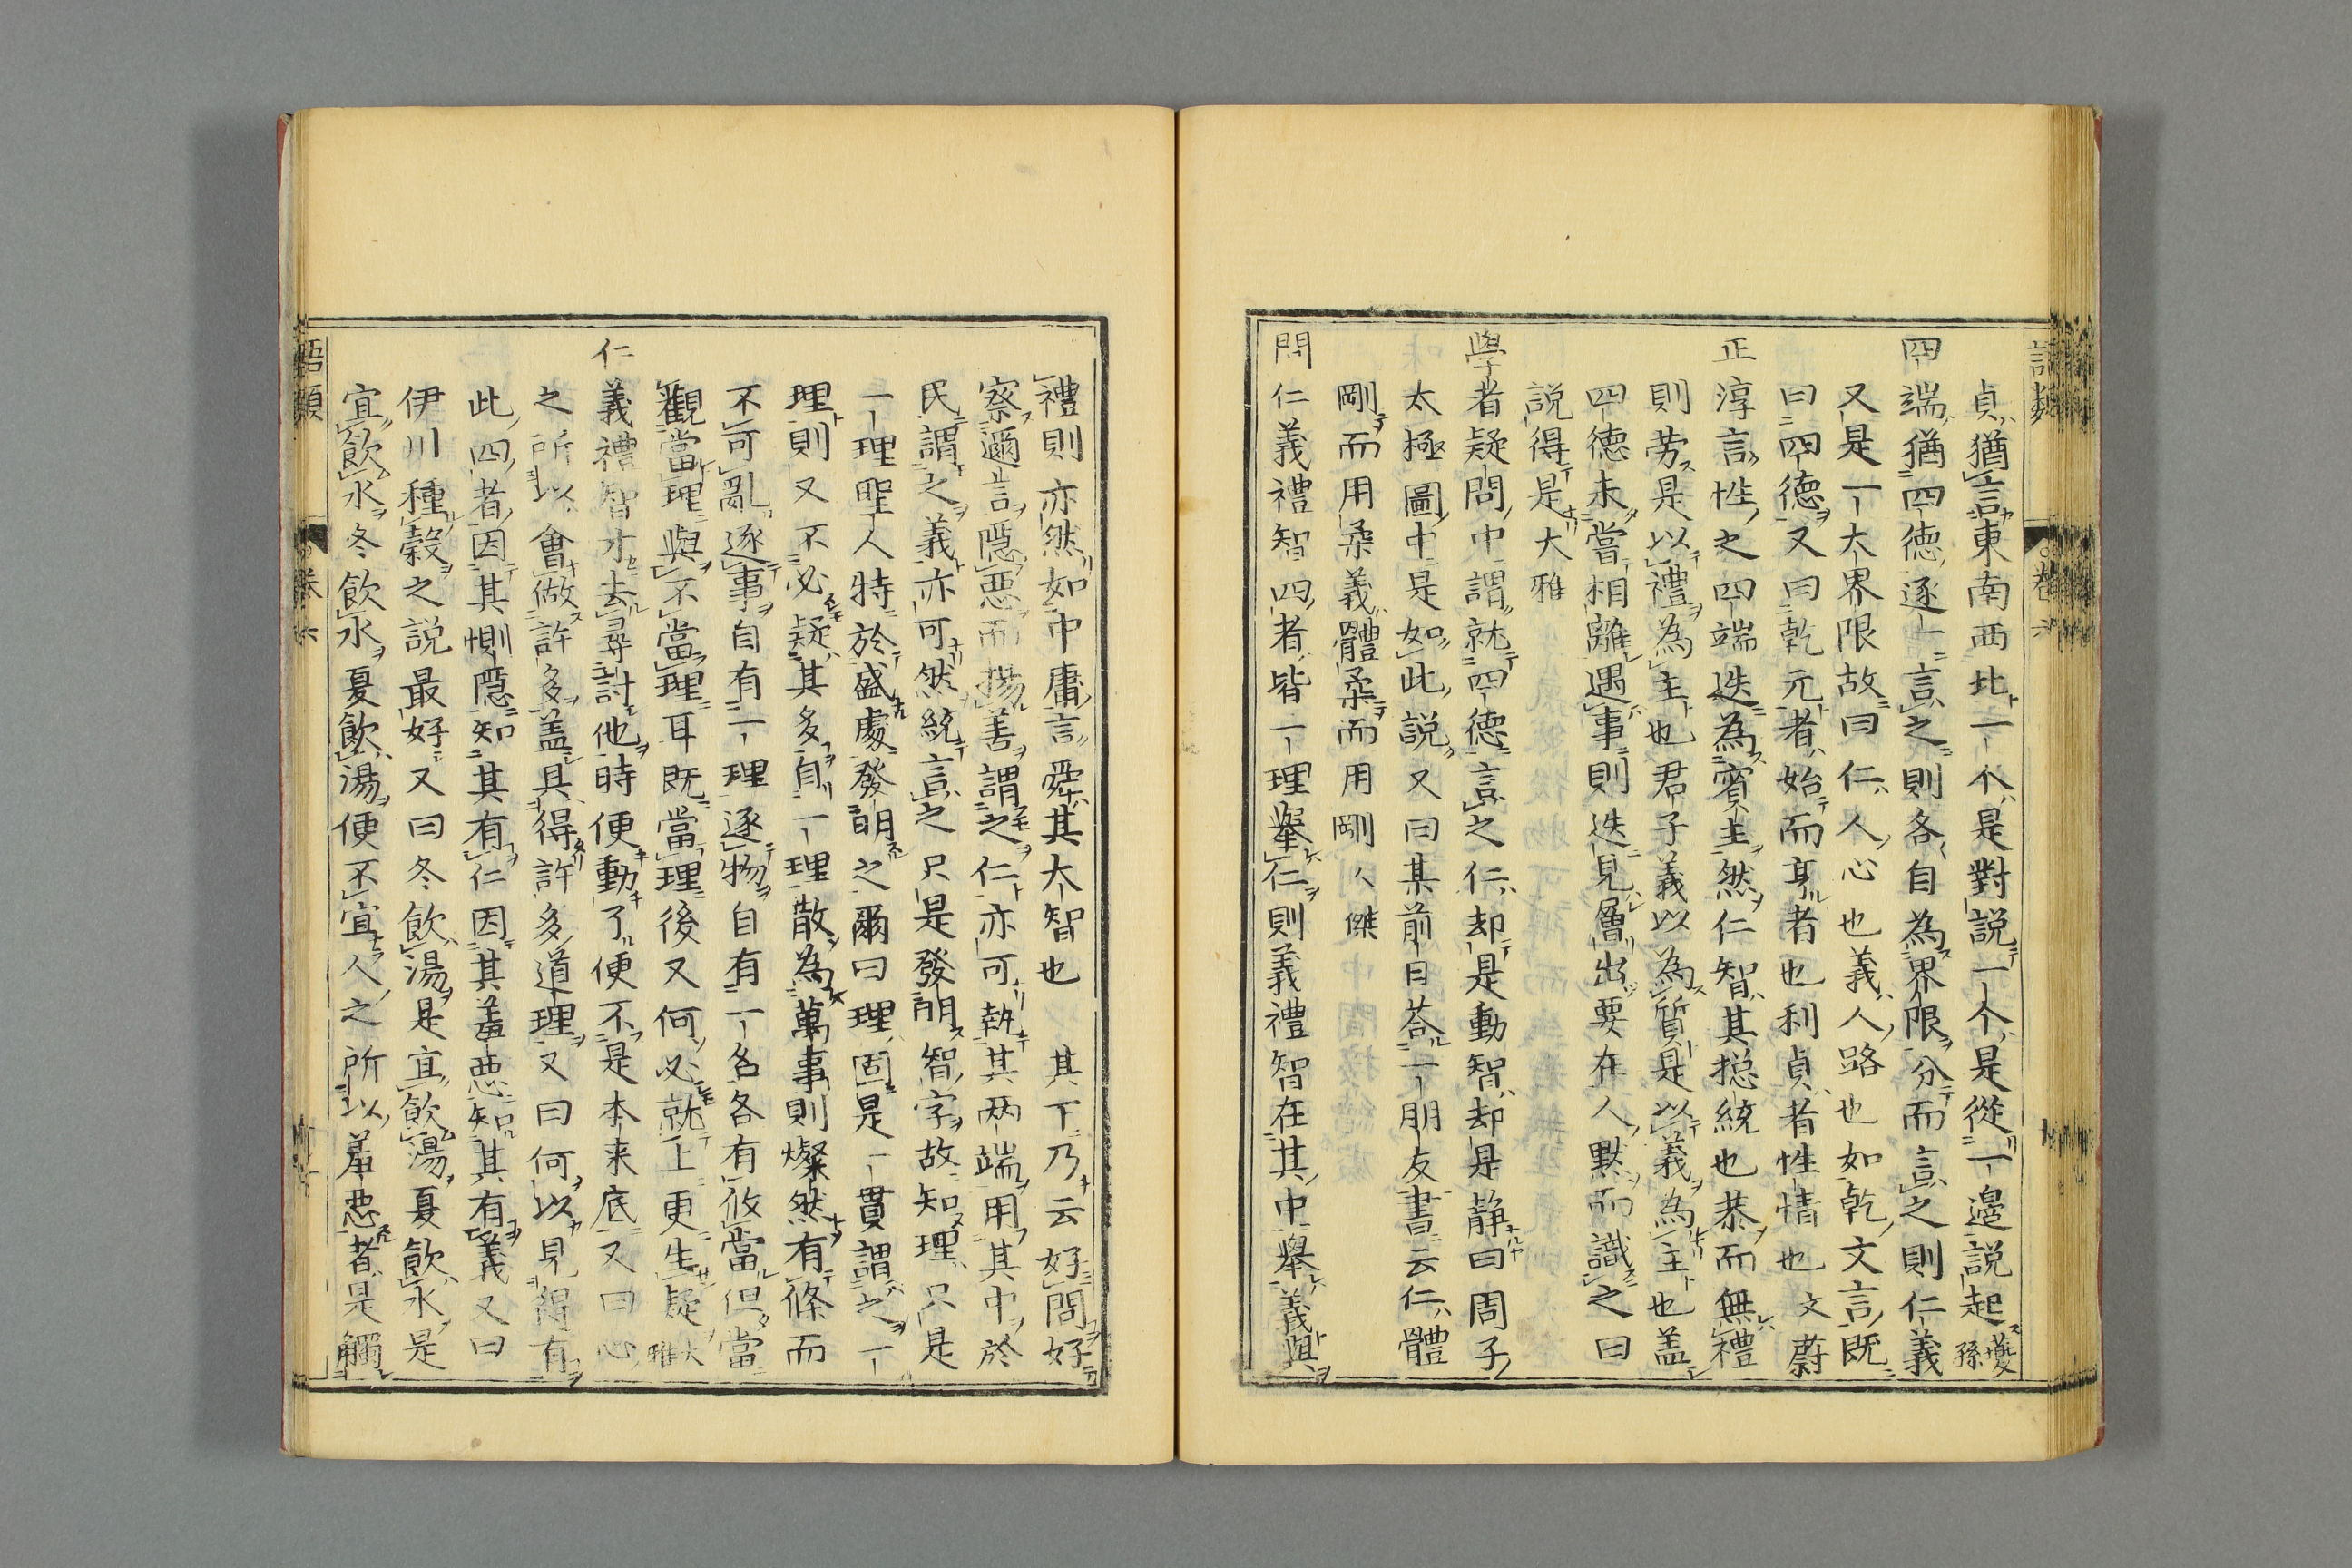 語類　卷六
貞猶言東南西北一个是對說一个是從一邊說起夔孫
四端猶四德逐一言之則各自為界限分而言之則仁義
又是一大界限故曰仁人心也義人路也如乾文言既
曰四德又曰乾元者始而亨者也利貞者性情也文蔚
正淳言性之四端迭為賓主然仁智其揔統也恭而無禮
則勞是以禮為主也君子義以為質是以義為主也盖
四德未嘗相離遇事則迭見層出要在人默而識之曰
說得是大雅
學者疑問中謂就四德言之仁却是動智却是静曰周子
太極圖中是如此說又曰某前日荅一朋友書云仁體
剛而用柔義體柔而用剛人傑
問仁義禮智四者皆一理舉仁則義禮智在其中舉義與
禮則亦然如中庸言舜其大智也　其下乃云好問好
察邇言隱惡而揚善謂之仁亦可執其两端用其中於
民謂之義亦可然統言之只是發明智字故知理只是
一理聖人特於盛處發明之爾曰理固是一貫謂之一
理則又不必疑其多自一理散為萬事則燦然有條而
不可亂逐事自有一理逐物自有一名各有攸當但當
觀當理與不當理耳既當理後又何必就上更生疑大雅
仁義禮智才去尋討他時便動了便不是本来底又曰心
之所以會做許多盖具得許多道理又曰何以見得有
此四者因其惻隱知其有仁因其羞惡知其有義又曰
伊川種穀之說最好又曰冬飲湯是宜飲湯夏飲水是
宜飲水冬飲水夏飲湯便不宜人之所以羞惡者是觸
語類　卷六